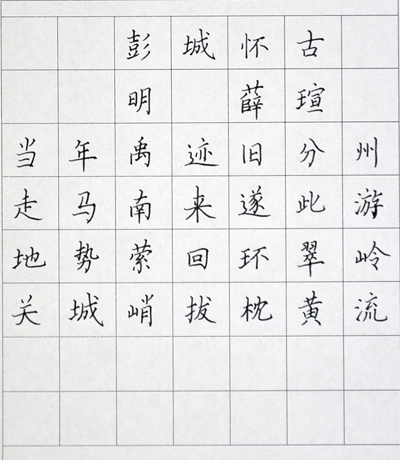 彭城怀古
明 薛瑄
当年禹迹旧分州
走马南来遂此游
地势萦回环翠岭
关城峭拔枕黄流